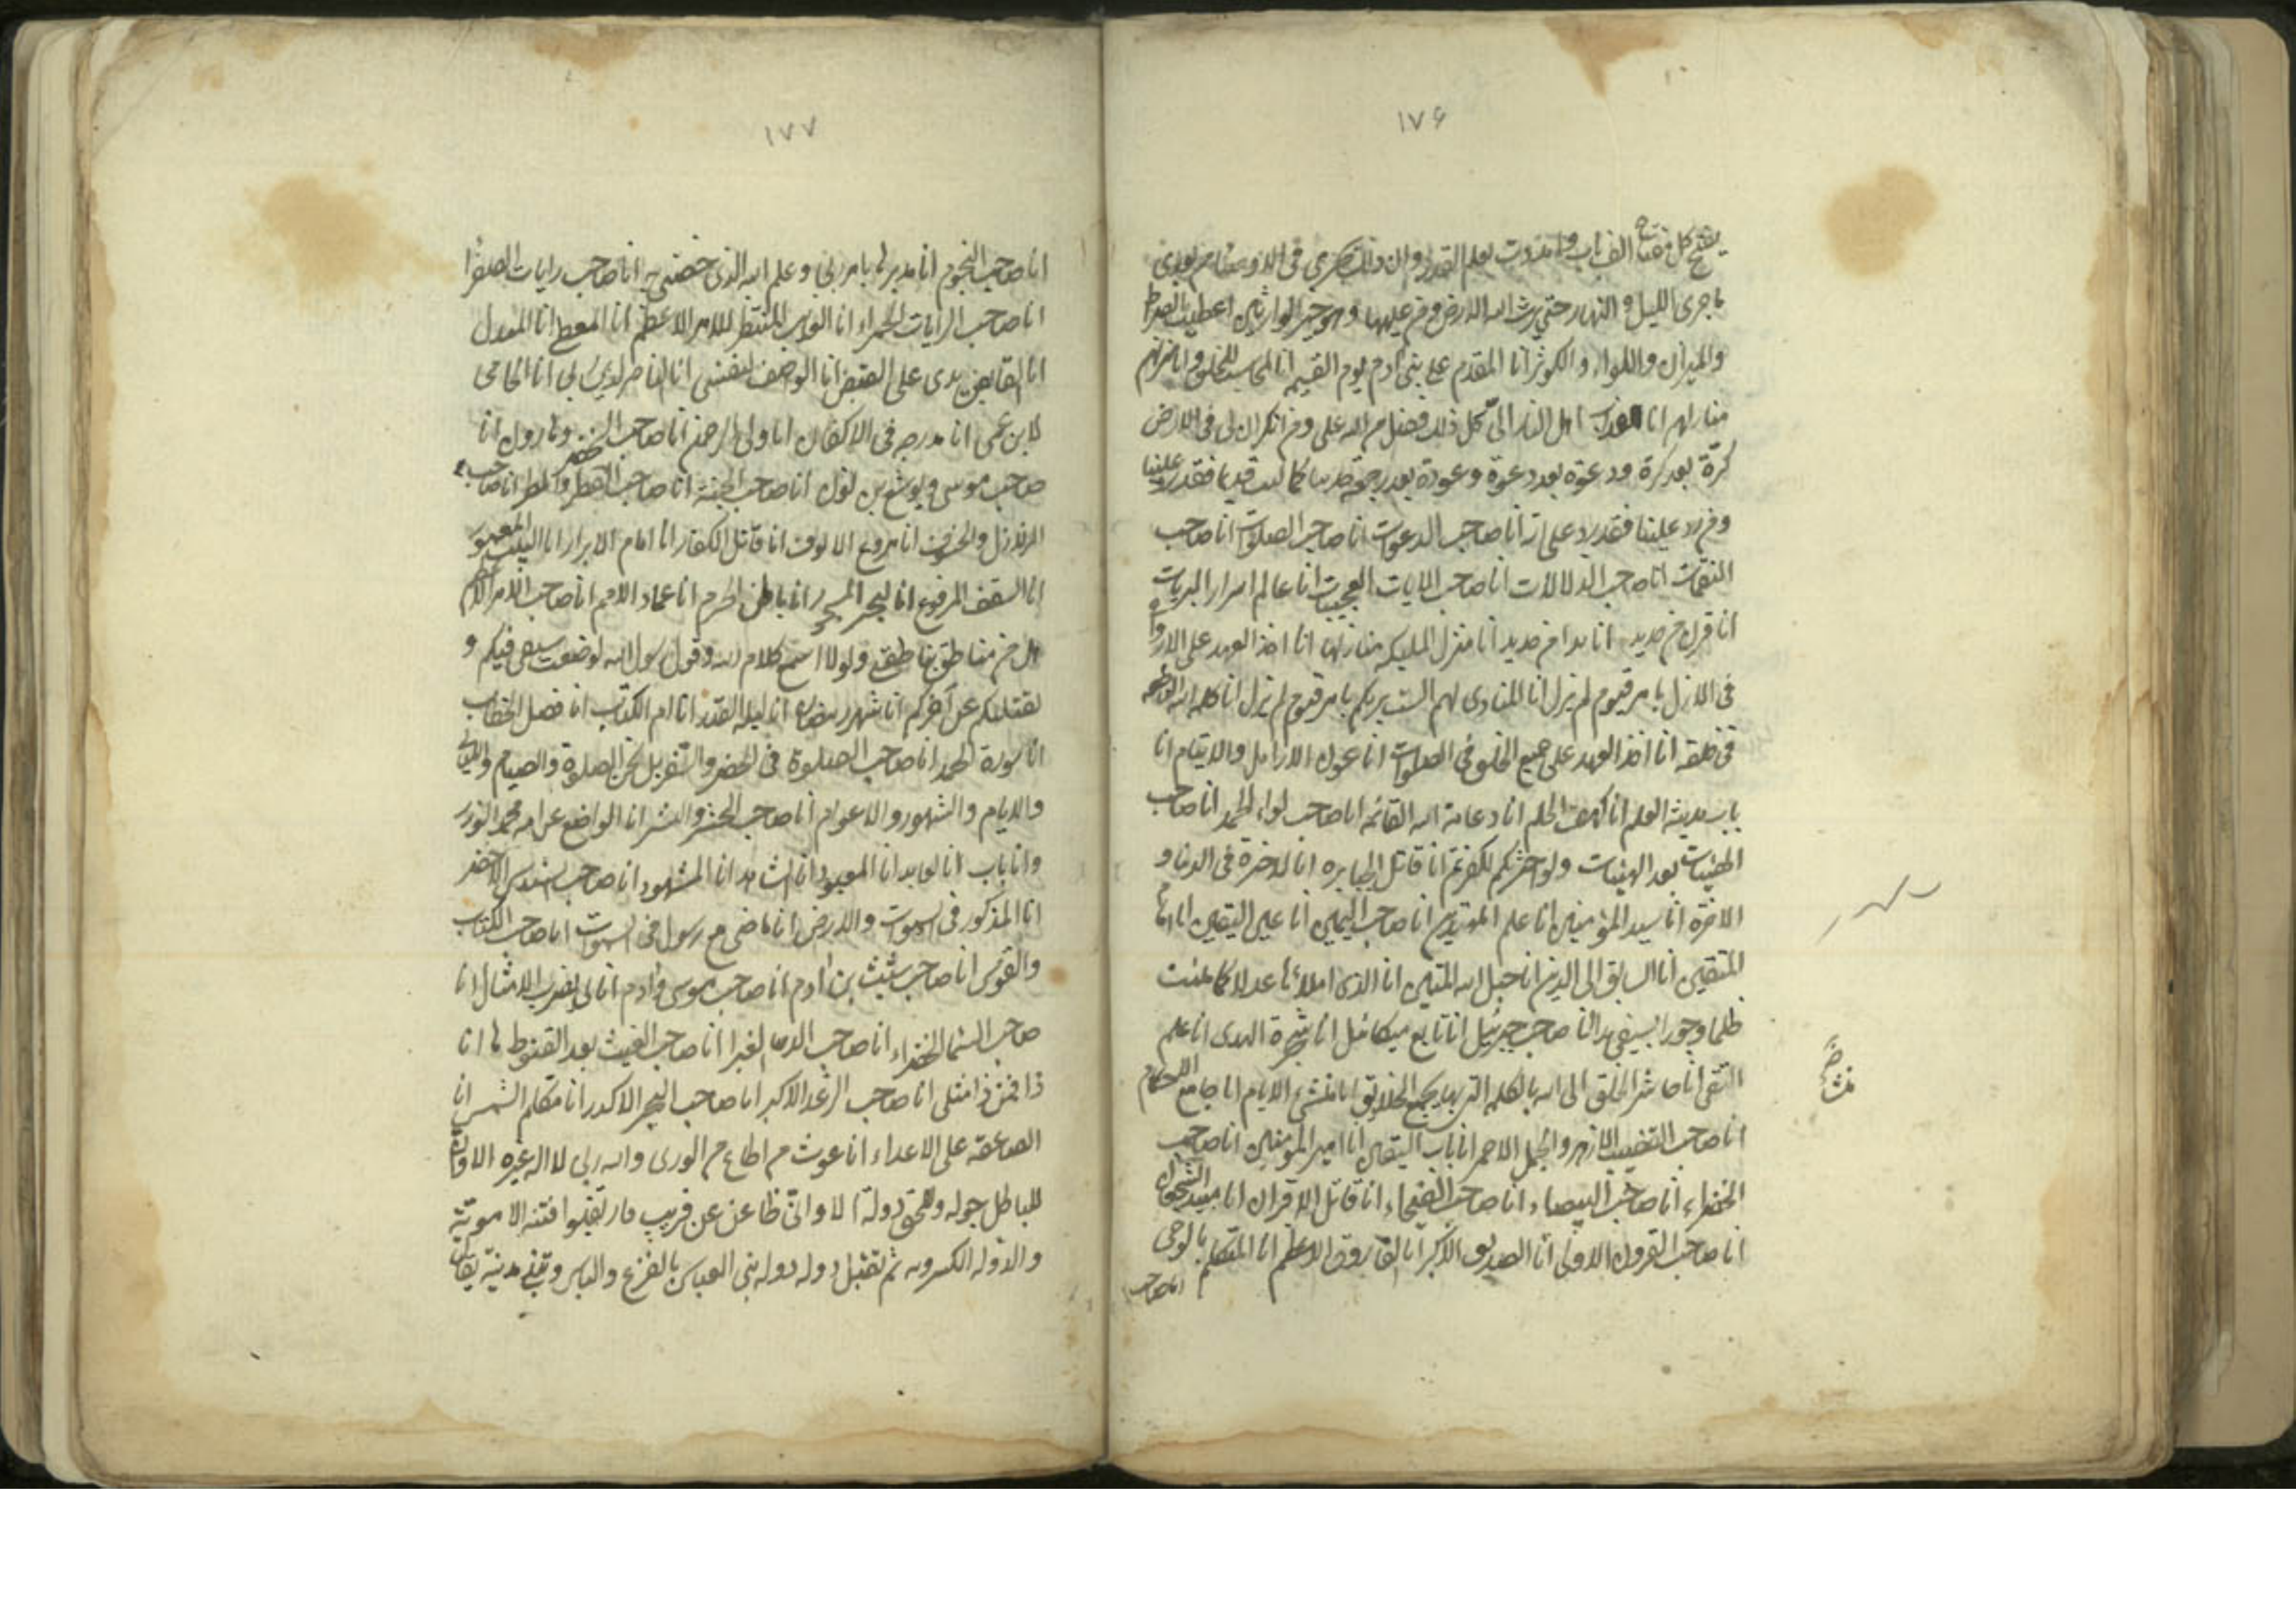 ١٧۶
يفتح كل مفتاح الف باب وامددت بعلم القدر وان ذلك يجري في الاوصياء من بعدي
ما جرى الليل و النهار حتى يرث الله الارض ومن عليها وهو خير الوارثين اعطيت الصراط
والميزان واللواء والكوثر انا المقدم على بني آدم يوم القيمة انا المحاسب للخلق وانا منزلهم
منازلهم انا اهل النار الى كل ذلك فضل من الله علي ومن انكر ان لي في الارض
كرة بعد كرة ودعوة بعد دعوة وعودة بعد رجعة حديثا كما كنت قديما فقد رد علينا
ومن رد علينا فقد رد على الله انا صاحب الدعوات انا صاحب الصلوات انا صاحب
النقمات انا صاحب الدلالات انا صاحب الايات العجيبات انا عالم اسرار البريات
انا قرن من حديد انا بدا من حديد انا منزل المليكه منازلها انا اخذ العهد على الارواح
في الازل بامر قيوم لم يزل انا المنادى لهم الست بربكم بامر قيوم لم يزل انا كلمة الله الناطقه
في خلقه انا اخذ العهد على جميع الخلق في الصلوات انا عون الارامل والايتام انا
باب مدينة العلم انا كهف الحلم انا دعامة الله القائمه انا صاحب لواء الحمد انا صاحب
الهبات بعد الهبات ولو اخبرتكم لكفرتم انا قاتل الجبابره انا الذخرة في الدنيا و
الاخرة انا سيد المؤمنين انا علم المهتدين انا صاحب اليمين انا عين اليقين انا امام
المتقين انا السابق الى الدين انا حبل الله المتين انا الذي املأها عدلا كما ملئت
ظلما وجورا بسيفي هذا انا صاحب جبرئيل انا تابع ميكائيل انا شجرة الهدى انا علم
التقى انا حاشر الخلق الى الله بالكلمة التي بها يجمع الخلايق انا منشئ الايام انا جامع الاحكام
انا صاحب القضيب الازهر والجمل الاحمر انا باب اليقين انا امير المؤمنين انا صاحب
الخضراء انا صاحب البيضاء انا صاحب الفيحاء انا قاتل الاقران انا مبيد الشجعان
انا صاحب القرون الاولى انا الصديق الاكبر انا الفاروق الاعظم انا المتكلم بالوحى
انا صاحب
١٧٧
انا صاحب النجوم انا مدبرها بامر ربي وعلم الله الذي خصني به انا صاحب رايات الصفرا
انا صاحب الرايات الحمراء انا الغايب المنتظر للامر الاعظم انا المعطى انا المبذل
انا القابض يدى على القبض انا الواصف لنفسى انا الناظر لدين ربي انا الحامى
لابن عمى انا مدرجه في الاكفان انا ولى الرحمن انا صاحب الخضر وهارون انا
صاحب موسى ويوشع بن نون انا صاحب الجنة انا صاحب القطر والمطر انا صاحب
الزلازل والخسوف انا مروع الالوف انا قاتل الكفار انا امام الابرار انا البيت المعمور
انا السقف المرفوع انا البحر المسجور انا باطن الحرم انا عماد الامم انا صاحب الامر الاعظم
هل من ناطق يناطقني ولولا اسمع كلام الله وقول رسول الله لوضعت سيفى فيكم و
لقتلتكم عن آخركم انا شهر رمضان انا ليلة القدر انا ام الكتاب انا فصل الخطاب
انا سورة الحمد انا صاحب الصلوة في الحضر والسفر بل نحن الصلوة والصيام والليالى
والايام والشهور والاعوام انا صاحب الحشر والنشر انا الواضع عن امة محمد الوزر
وانا باب انا العابد انا المعبود انا الشاهد انا المشهود انا صاحب السندس الاخضر
انا المذكور في السموات والارض انا ماضى مع رسول في السموات انا صاحب الكتاب
والقوس انا صاحب شيث بن آدم انا صاحب موسى وآدم انا لى يضرب الامثال انا
صاحب السماء الخضراء انا صاحب الدنيا الغبرا انا صاحب الغيث بعد القنوط ها انا
ذا فمن ذا مثلى انا صاحب الرعد الاكبر انا صاحب البحر الاكدر انا مكلم الشمس انا
الصاعقة على الاعداء انا غوث من اطاع من الورى والله ربي لا اله غيره الا وان
للباطل جوله وللحق دولة الا وانى ظاعن عن قريب فارتقبوا فتنة الاموية
والدوله الكسرويه ثم تقبل دوله دوله بنى العباس بالفزع والباس وتبنى مدينة يقال